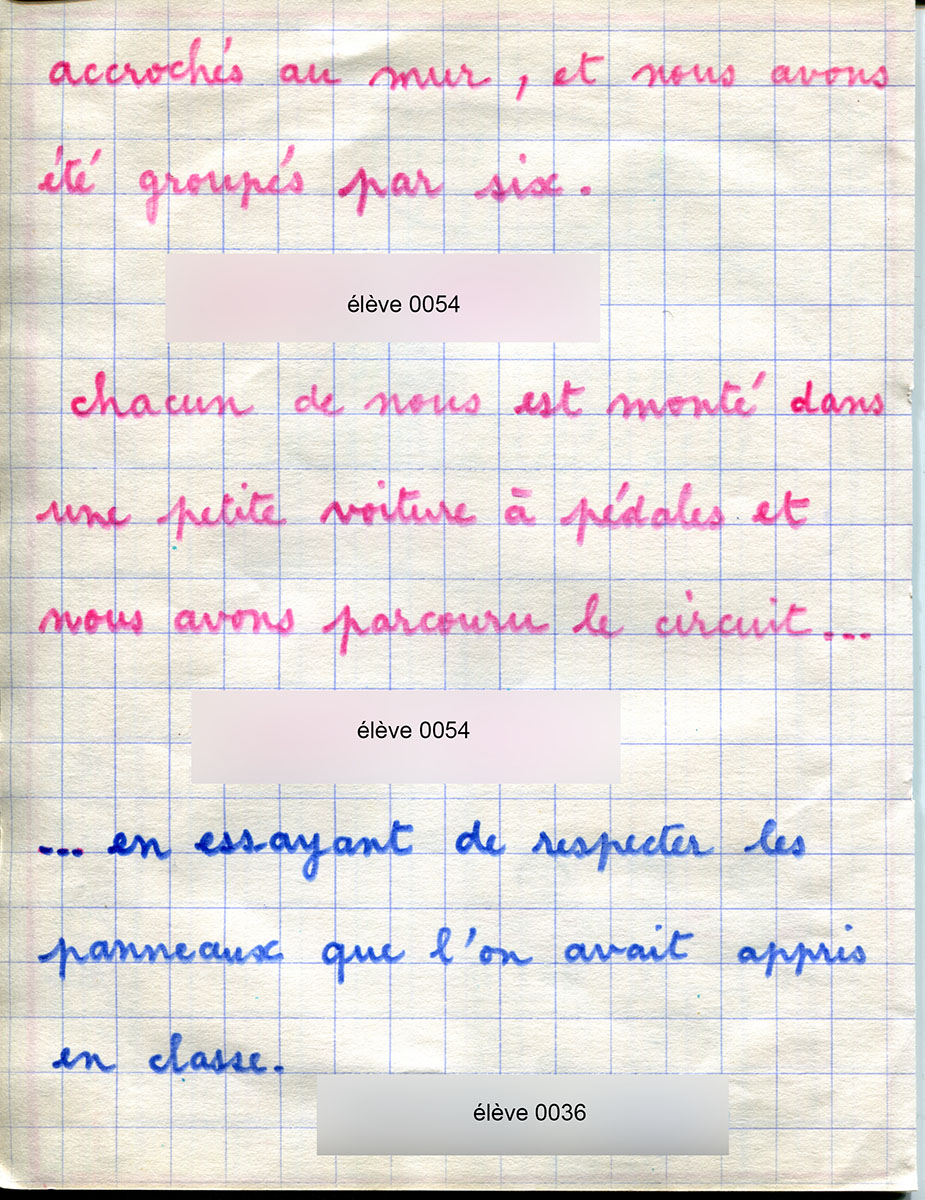 accrochés au mur, et nous avons
été groupés par six.
élève 0054
chacun de nous est monté dans
une petite voiture à pédales et
nous avons parcouru le circuit...
élève 0054
... en essayant de respecter les
panneaux que l'on avait appris
en classe.
élève 0036